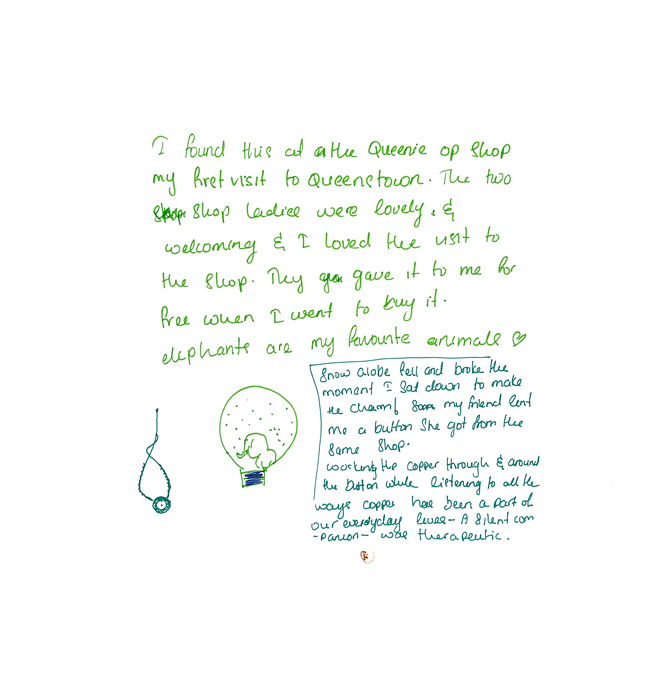 I found this at the Queenie op shop
my first visit to Queenstown. The two
shop ladies were lovely. &
welcoming & I loved the visit to
the shop. They gave it to me for
free when I went to buy it.
elephants are my favourite animals ♡
Snow Globe fell and broke the
moment I sat down to make
the charm! my friend lent
me a button she got from the
same shop.
working the copper through & around
the button while listening to all the
ways copper has been a part of
our everyday lives - A silent com
-panion- was therapeutic.